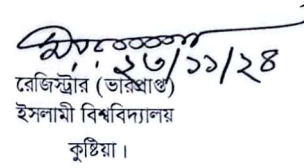 ২৩/১১/২৪
রেজিস্ট্রার (ভারপ্রাপ্ত)
ইসলামী বিশ্ববিদ্যালয়
কুষ্টিয়া।